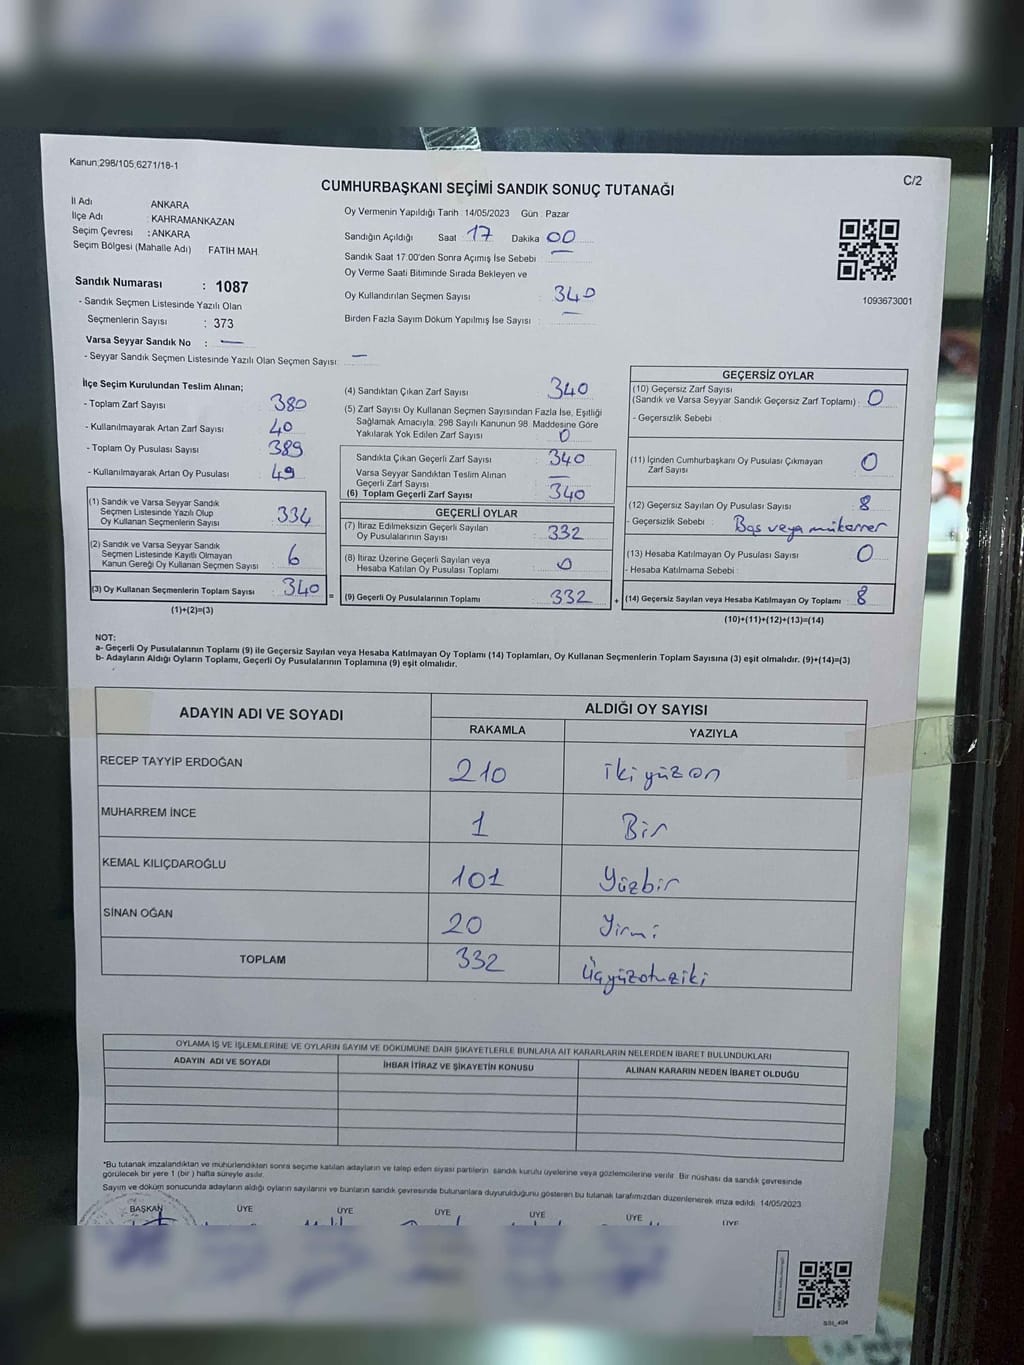 Kanun,298/105,6271/18-1
C/2
CUMHURBAŞKANI SEÇİMİ SANDIK SONUÇ TUTANAĞI
İl Adı ANKARA
İlçe Adı : KAHRAMANKAZAN
Seçim Çevresi : ANKARA
Seçim Bölgesi (Mahalle Adı) FATİH MAH.
Sandık Numarası : 1087
- Sandık Seçmen Listesinde Yazılı Olan
Seçmenlerin Sayısı : 373
Varsa Seyyar Sandık No : —
- Seyyar Sandık Seçmen Listesinde Yazılı Olan Seçmen Sayısı: —
Oy Vermenin Yapıldığı Tarih 14/05/2023 Gün : Pazar
Sandığın Açıldığı Saat 17 Dakika 00
Sandık Saat 17.00'den Sonra Açımış İse Sebebi : —
Oy Verme Saati Bitiminde Sırada Bekleyen ve
Oy Kullandırılan Seçmen Sayısı : 340
Birden Fazla Sayım Döküm Yapılmış İse Sayısı : —
1093673001
İlçe Seçim Kurulundan Teslim Alınan;
- Toplam Zarf Sayısı : 380
- Kullanılmayarak Artan Zarf Sayısı : 40
- Toplam Oy Pusulası Sayısı : 389
- Kullanılmayarak Artan Oy Pusulası : 49
(1) Sandık ve Varsa Seyyar Sandık
Seçmen Listesinde Yazılı Olup
Oy Kullanan Seçmenlerin Sayısı : 334
(2) Sandık ve Varsa Seyyar Sandık
Seçmen Listesinde Kayıtlı Olmayan
Kanun Gereği Oy Kullanan Seçmen Sayısı : 6
(3) Oy Kullanan Seçmenlerin Toplam Sayısı : 340 =
(1)+(2)=(3)
(4) Sandıktan Çıkan Zarf Sayısı : 340
(5) Zarf Sayısı Oy Kullanan Seçmen Sayısından Fazla İse, Eşitliği
Sağlamak Amacıyla, 298 Sayılı Kanunun 98. Maddesine Göre
Yakılarak Yok Edilen Zarf Sayısı : 0
Sandıkta Çıkan Geçerli Zarf Sayısı : 340
Varsa Seyyar Sandıktan Teslim Alınan
Geçerli Zarf Sayısı : —
(6) Toplam Geçerli Zarf Sayısı : 340
GEÇERLİ OYLAR
(7) İtiraz Edilmeksizin Geçerli Sayılan
Oy Pusulalarının Sayısı : 332
(8) İtiraz Üzerine Geçerli Sayılan veya
Hesaba Katılan Oy Pusulası Toplamı : 0
(9) Geçerli Oy Pusulalarının Toplamı : 332 +
GEÇERSİZ OYLAR
(10) Geçersiz Zarf Sayısı
(Sandık ve Varsa Seyyar Sandık Geçersiz Zarf Toplamı) : 0
- Geçersizlik Sebebi :
(11) İçinden Cumhurbaşkanı Oy Pusulası Çıkmayan
Zarf Sayısı : 0
(12) Geçersiz Sayılan Oy Pusulası Sayısı : 8
- Geçersizlik Sebebi : Boş veya mükerrer
(13) Hesaba Katılmayan Oy Pusulası Sayısı : 0
- Hesaba Katılmama Sebebi :
(14) Geçersiz Sayılan veya Hesaba Katılmayan Oy Toplamı : 8
(10)+(11)+(12)+(13)=(14)
NOT:
a- Geçerli Oy Pusulalarının Toplamı (9) ile Geçersiz Sayılan veya Hesaba Katılmayan Oy Toplamı (14) Toplamları, Oy Kullanan Seçmenlerin Toplam Sayısına (3) eşit olmalıdır. (9)+(14)=(3)
b- Adayların Aldığı Oyların Toplamı, Geçerli Oy Pusulalarının Toplamına (9) eşit olmalıdır.
ADAYIN ADI VE SOYADI
ALDIĞI OY SAYISI
RAKAMLA YAZIYLA
RECEP TAYYİP ERDOĞAN 210 ikiyüzon
MUHARREM İNCE 1 Bir
KEMAL KILIÇDAROĞLU 101 Yüzbir
SİNAN OĞAN 20 Yirmi
TOPLAM 332 Üçyüzotuziki
OYLAMA İŞ VE İŞLEMLERİNE VE OYLARIN SAYIM VE DÖKÜMÜNE DAİR ŞİKAYETLERLE BUNLARA AİT KARARLARIN NELERDEN İBARET BULUNDUKLARI
ADAYIN ADI VE SOYADI İHBAR İTİRAZ VE ŞİKAYETİN KONUSU ALINAN KARARIN NEDEN İBARET OLDUĞU
*Bu tutanak imzalandıktan ve mühürlendikten sonra seçime katılan adayların ve talep eden siyasi partilerin sandık kurulu üyelerine veya gözlemcilerine verilir. Bir nüshası da sandık çevresinde
görülecek bir yere 1 (bir) hafta süreyle asılır.
Sayım ve döküm sonucunda adayların aldığı oyların sayılarını ve bunların sandık çevresinde bulunanlara duyurulduğunu gösteren bu tutanak tarafımızdan düzenlenerek imza edildi. 14/05/2023
BAŞKAN ÜYE ÜYE ÜYE ÜYE ÜYE ÜYE